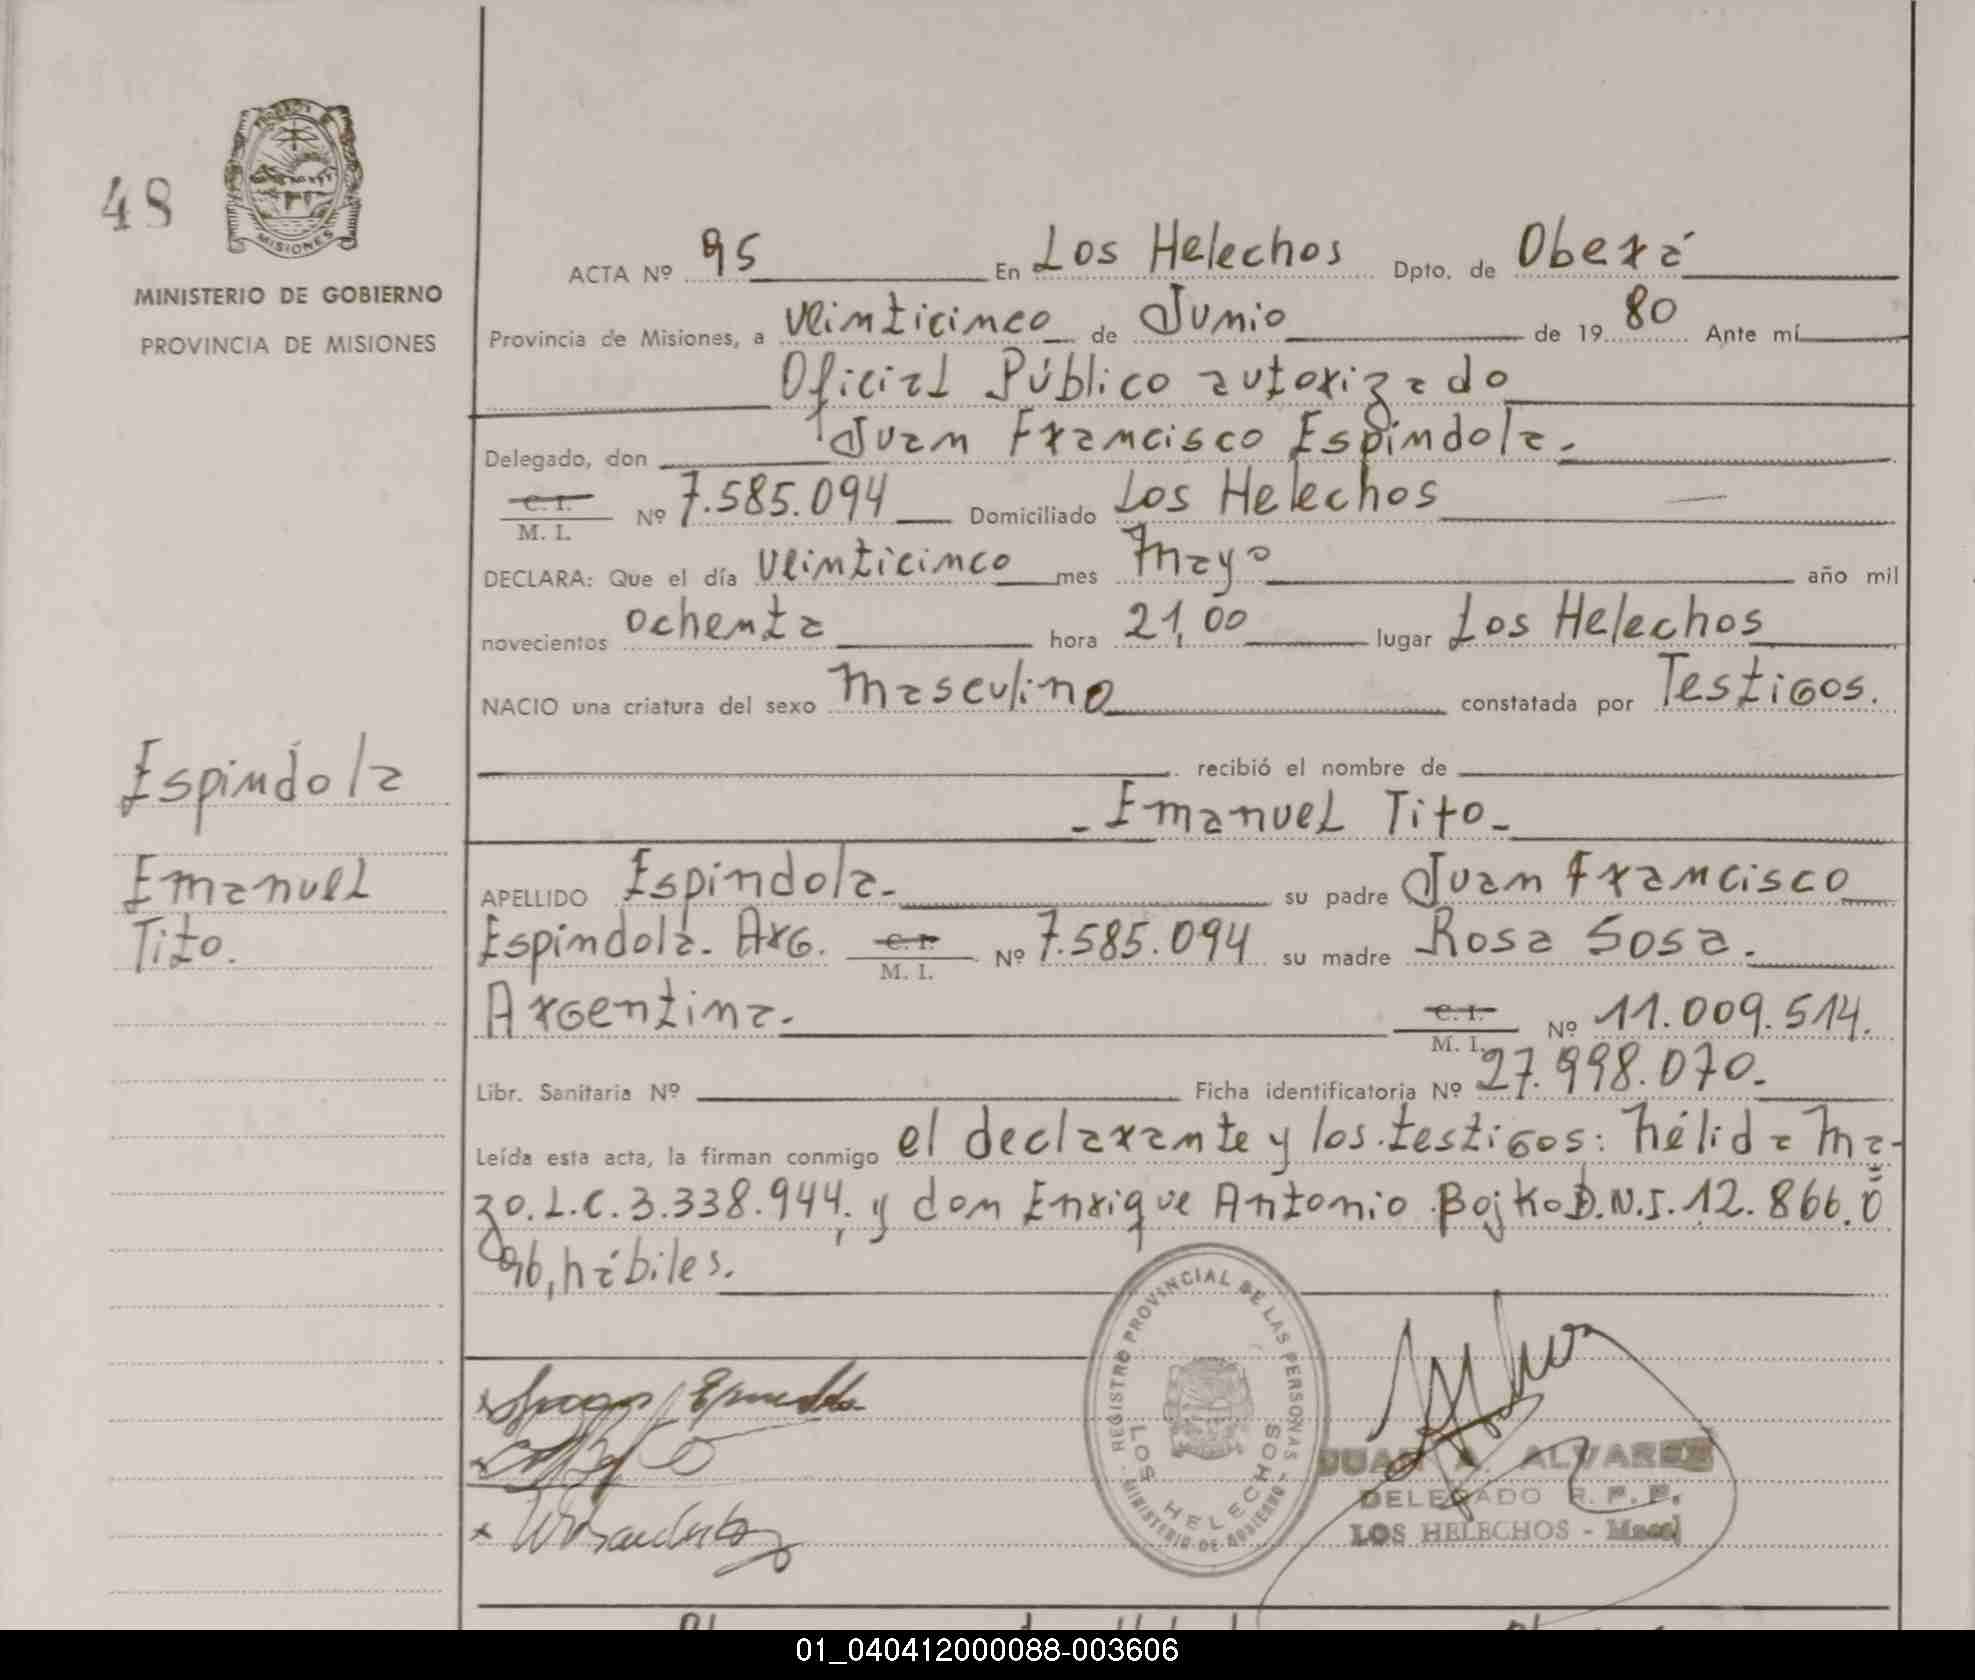 48
MISIONES
MINISTERIO DE GOBIERNO
PROVINCIA DE MISIONES
Espindola
Emanuel
Tito.
ACTA Nº 95 En Los Helechos Dpto. de Oberá
Provincia de Misiones, a veinticinco de Junio de 19 80 Ante mí
Oficial Público autorizado
Delegado, don Juan Francisco Espindola.
C. I.
M. I. Nº 7.585.094 Domiciliado Los Helechos
DECLARA: Que el día veinticinco mes Mayo año mil
novecientos ochenta hora 21,00 lugar Los Helechos
NACIO una criatura del sexo Masculino constatada por Testigos.
recibió el nombre de
- Emanuel Tito -
APELLIDO Espindola. su padre Juan Francisco
Espindola. Arg. C. I. M. I. Nº 7.585.094 su madre Rosa Sosa.
Argentina. C. I. M. I. Nº 11.009.514.
Libr. Sanitaria Nº Ficha identificatoria Nº 27.998.070.
Leída esta acta, la firman conmigo el declarante y los testigos: Nélida Ma-
zo. L.C. 3.338.944. y don Enrique Antonio Bojko D.N.I. 12.866.0
96, hábiles.
REGISTRO PROVINCIAL DE LAS PERSONAS - MINISTERIO DE GOBIERNO -
LOS HELECHOS
JUAN A. ALVAREZ
DELEGADO R. P. P.
LOS HELECHOS -
01_040412000088-003606